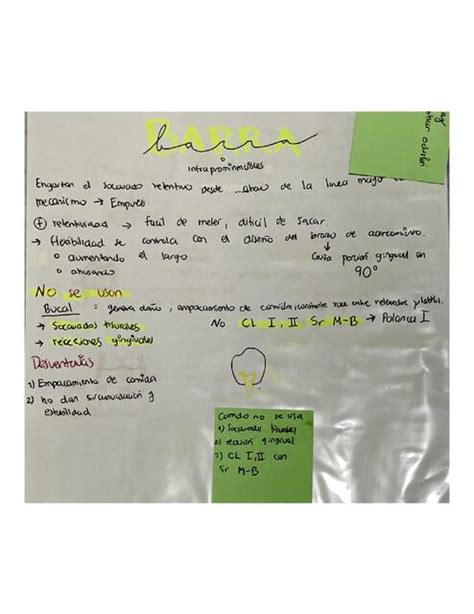 BARRA
barra
infraprominenciales
Enganchan el socavado retentivo desde abajo de la linea mayor
mecanismo → Empuje
(+) retentividad → facil de meter, dificil de sacar
→ flexibilidad se controla con el diseño del brazo de acercamiento.
o aumentando el largo
o ahusando
Cruza porcion gingival en
90°
No se usan
Bucal = genera daño, empacamiento de comida, constante roce entre retenedor y labios.
→ Socavados tisurales
No CL I, II Sr M-B → Palanca I
→ recesiones gingivales
Desventajas
1) Empacamiento de comida
2) no dan circunvalacion y
estabilidad
Cuando no se usa
1) Socavados tisurales
2) recesion gingival
3) CL I, II con
Sr M-B